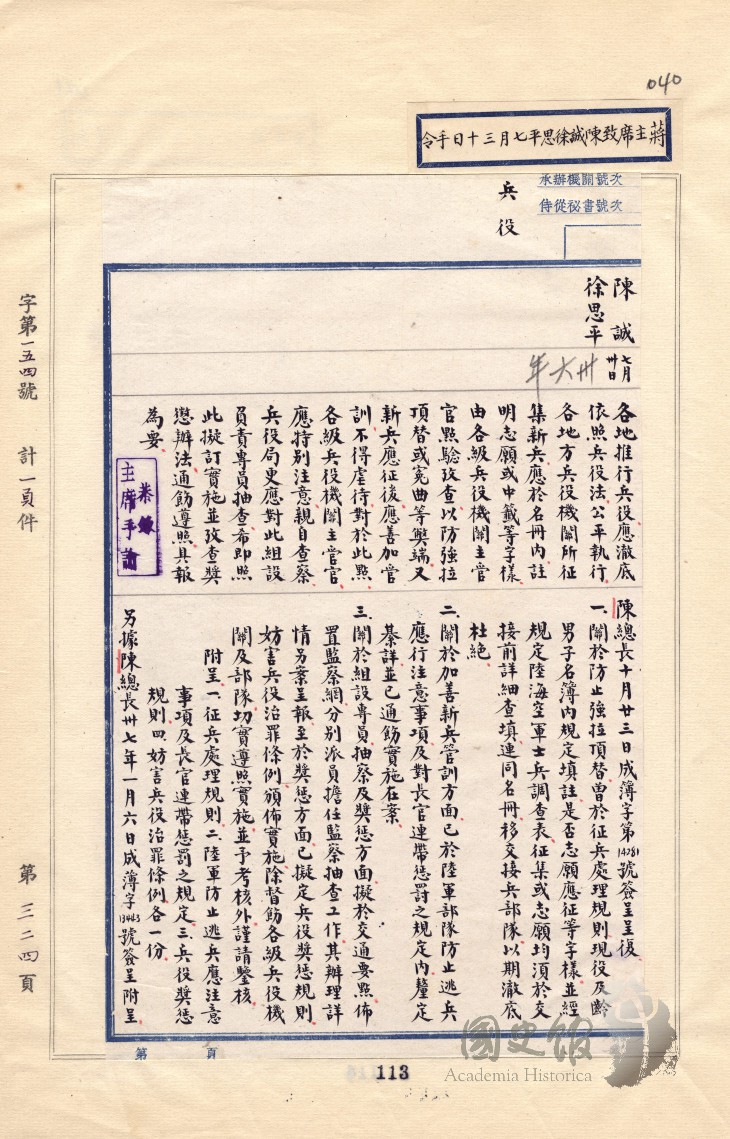 040
蔣主席致陳誠徐思平七月三十日手令
承辦機關號次
侍從秘書號次
兵役
陳誠
徐思平
七月
卅日
卅六年
各地推行兵役應澈底
依照兵役法公平執行
各地方兵役機關所征
集新兵應於名冊內註
明志願或中籤等字樣
由各級兵役機關主管
官點驗攷查以防強拉
頂替或冤曲等弊端又
新兵應征後應善加管
訓不得虐待對於此點
各級兵役機關主管官
應特別注意親自查察
兵役局更應對此組設
員責專員抽查希即照
此擬訂實施並攷查獎
懲辦法通飭遵照具報
為要
主席手諭
陳總長十月廿三日成簿字第14281號簽呈呈復
一、關於防止強拉頂替曾於征兵處理規則現役及齡
男子名簿內規定填註是否志願應征等字樣並經
規定陸海空軍士兵調查表征集或志願均須於交
接前詳細查填連同名冊移交接兵部隊以期澈底
杜絕
二、關於加善新兵管訓方面已於陸軍部隊防止逃兵
應行注意事項及對長官連帶懲罰之規定內釐定
綦詳並已通飭實施在案
三、關於組設專員抽察及獎懲方面擬於交通要點佈
置監察網分別派員擔任監察抽查工作其辦理詳
情另案呈報至於獎懲方面已擬定兵役獎懲規則
妨害兵役治罪條例頒佈實施除督飭各級兵役機
關及部隊切實遵照實施並予考核外謹請鑒核
附呈一、征兵處理規則二、陸軍防止逃兵應注意
事項及長官連帶懲罰之規定三、兵役獎懲
規則四、妨害兵役治罪條例各一份
另據陳總長卅七年一月六日成簿字13443號簽呈附呈
字第一五四號 計一頁件 第三二四頁
第 頁
113
國史館
Academia Historica